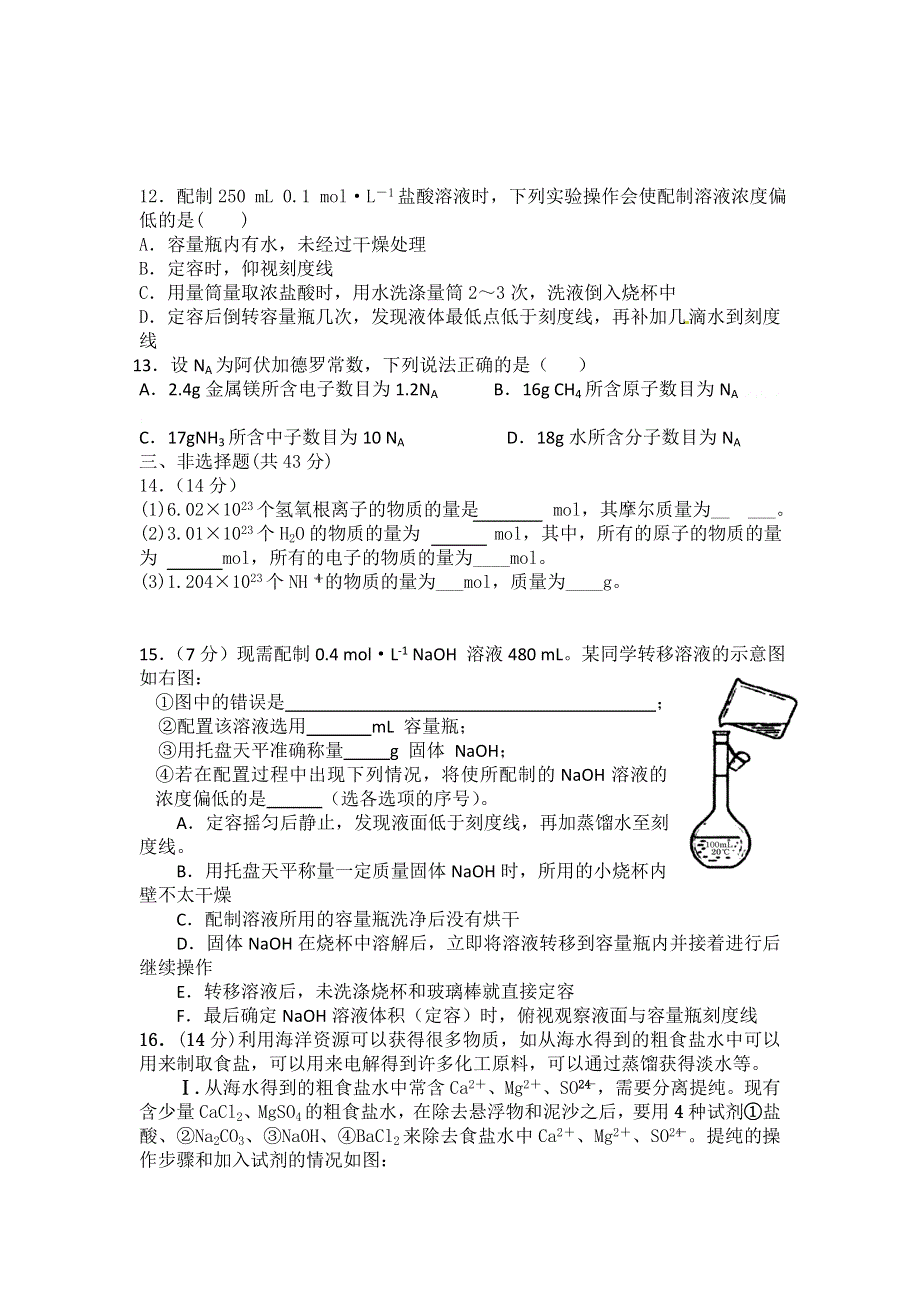 12．配制250 mL 0.1 mol·L－1盐酸溶液时，下列实验操作会使配制溶液浓度偏
低的是(　　)
A．容量瓶内有水，未经过干燥处理
B．定容时，仰视刻度线
C．用量筒量取浓盐酸时，用水洗涤量筒2～3次，洗液倒入烧杯中
D．定容后倒转容量瓶几次，发现液体最低点低于刻度线，再补加几滴水到刻度
线
13．设NA为阿伏加德罗常数，下列说法正确的是（　　）
A．2.4g金属镁所含电子数目为1.2NA　　　B．16g CH4所含原子数目为NA
C．17gNH3所含中子数目为10 NA　　　D．18g水所含分子数目为NA
三、非选择题(共43分)
14．（14分）
(1)6.02×1023个氢氧根离子的物质的量是______ mol，其摩尔质量为__ ___。
(2)3.01×1023个H2O的物质的量为 _____ mol，其中，所有的原子的物质的量
为 _____mol，所有的电子的物质的量为____mol。
(3)1.204×1023个NH +4的物质的量为___mol，质量为____g。
15．（7分）现需配制0.4 mol·L-1 NaOH 溶液480 mL。某同学转移溶液的示意图
如右图：
①图中的错误是______________________________；
②配置该溶液选用______mL 容量瓶；
③用托盘天平准确称量____g 固体 NaOH；
④若在配置过程中出现下列情况，将使所配制的NaOH溶液的
浓度偏低的是_____（选各选项的序号）。
A．定容摇匀后静止，发现液面低于刻度线，再加蒸馏水至刻
度线。
100mL
20℃
B．用托盘天平称量一定质量固体NaOH时，所用的小烧杯内
壁不太干燥
C．配制溶液所用的容量瓶洗净后没有烘干
D．固体NaOH在烧杯中溶解后，立即将溶液转移到容量瓶内并接着进行后
继续操作
E．转移溶液后，未洗涤烧杯和玻璃棒就直接定容
F．最后确定NaOH溶液体积（定容）时，俯视观察液面与容量瓶刻度线
16．(14分)利用海洋资源可以获得很多物质，如从海水得到的粗食盐水中可以
用来制取食盐，可以用来电解得到许多化工原料，可以通过蒸馏获得淡水等。
Ⅰ.从海水得到的粗食盐水中常含Ca2＋、Mg2＋、SO2－4，需要分离提纯。现有
含少量CaCl2、MgSO4的粗食盐水，在除去悬浮物和泥沙之后，要用4种试剂①盐
酸、②Na2CO3、③NaOH、④BaCl2来除去食盐水中Ca2＋、Mg2＋、SO2－4。提纯的操
作步骤和加入试剂的情况如图：